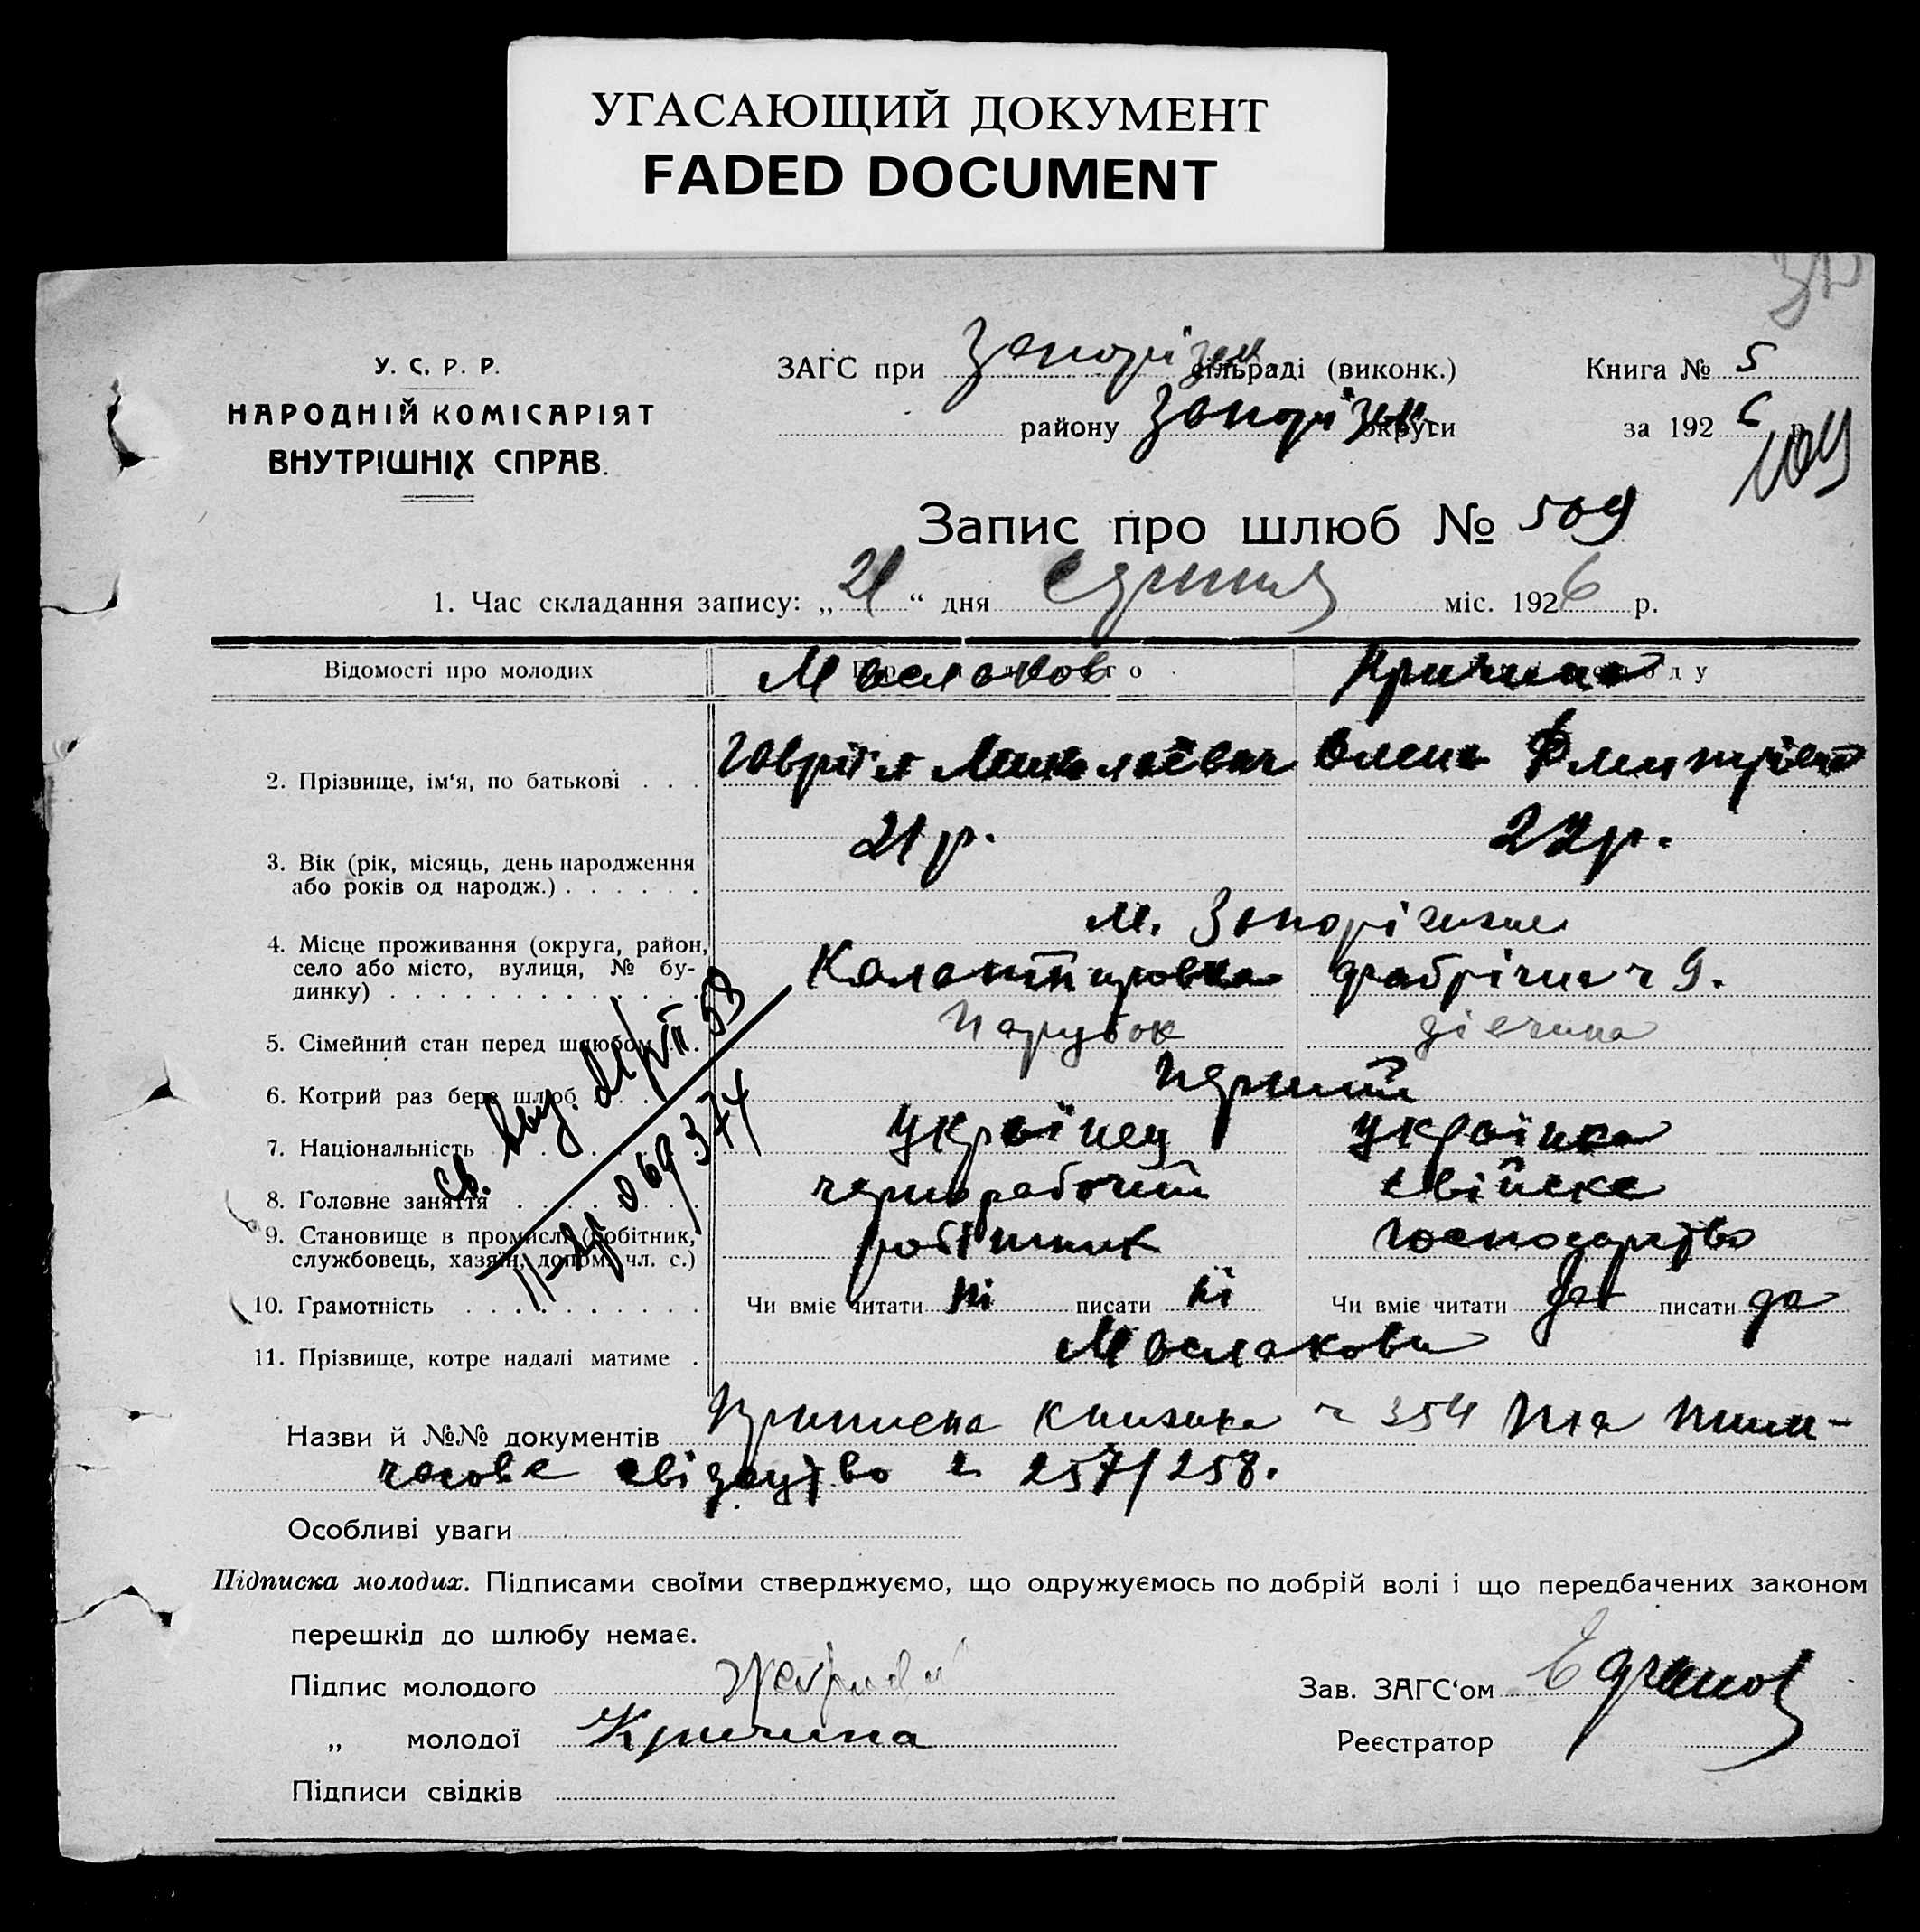 УГАСАЮЩИЙ ДОКУМЕНТ
FADED DOCUMENT
У. С. Р. Р.
НАРОДНІЙ КОМІСАРІЯТ
ВНУТРІШНІХ СПРАВ.
ЗАГС при Запорізьк сільраді (виконк.)
району Запорізьк округи
Книга № 5
за 1926 р.
Запис про шлюб № 509
1. Час складання запису: „21“ дня Серпня міс. 1926 р.
Відомості про молодих Маслаков Кричина
2. Прізвище, ім'я, по батькові . . . Гавриїл Миколаєвич Олена Дмитрівна
3. Вік (рік, місяць, день народження 21 р. 22 р.
або років од народж.) . . . . . .
4. Місце проживання (округа, район, м. Запоріжжя
село або місто, вулиця, № бу- Калантировка фабрічна ч 9.
динку) . . . . . . . . . . . . . .
5. Сімейний стан перед шлюбом . . Парубок дівчина
6. Котрий раз бере шлюб . . . . перший
7. Національність . . . . . . . українець українка
8. Головне заняття . . . . . . . чернорабочий свійське
9. Становище в промислі (робітник, робітник господарство
службовець, хазяїн, допом. чл. с.)
10. Грамотність . . . . . . . . . Чи вміє читати ні писати ні Чи вміє читати да писати да
11. Прізвище, котре надалі матиме . Маслакови
Назви й №№ документів Приписна книжка ч 354 та тим-
часове свідоцтво ч 257/258.
Особливі уваги
Підписка молодих. Підписами своїми стверджуємо, що одружуємось по добрій волі і що передбачених законом
перешкід до шлюбу немає.
Підпис молодого
Зав. ЗАГС'ом
„ молодої Кричина
Реєстратор
Підписи свідків